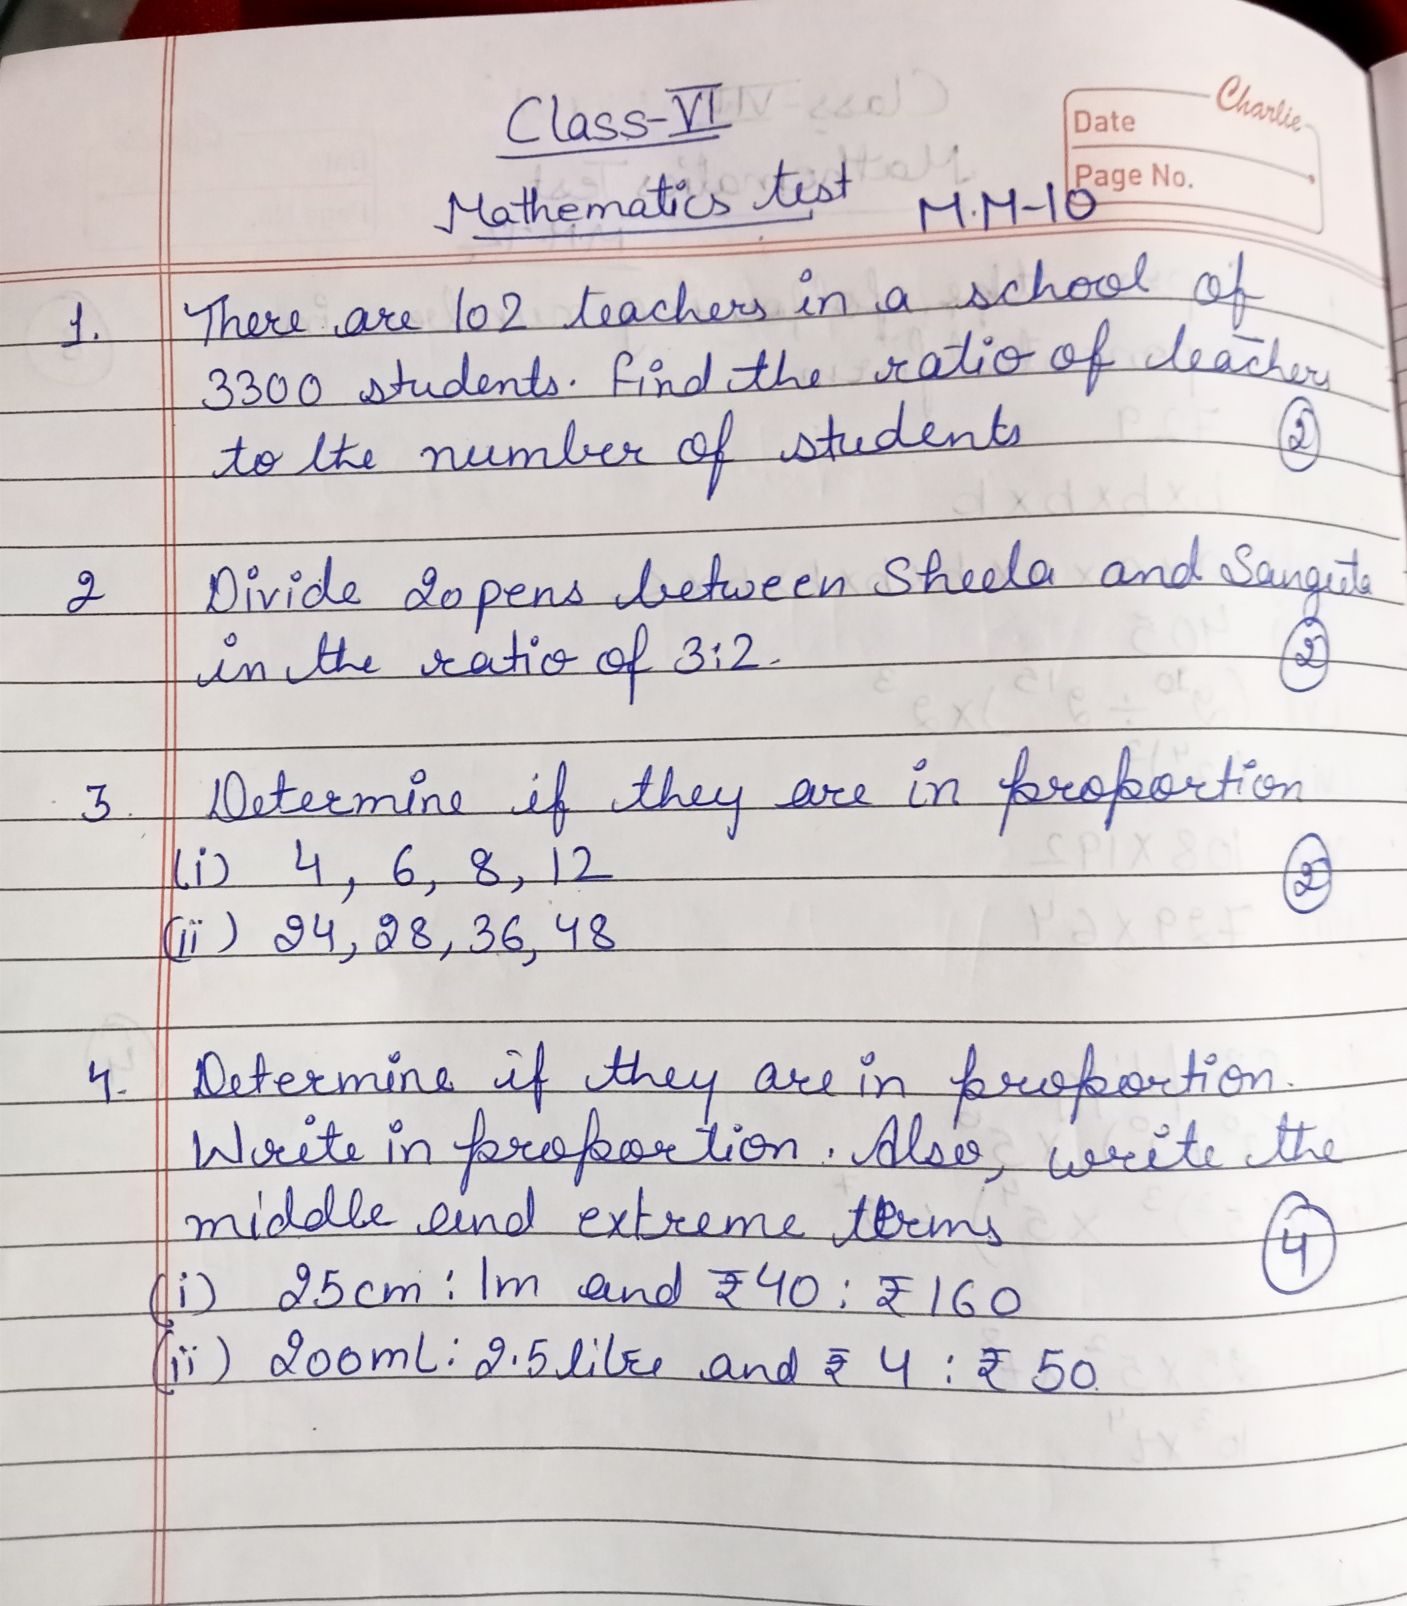 Class-VI
Charlie
Date
Page No.
Mathematics test M.M-10
1. There are 102 teachers in a school of
3300 students. Find the ratio of teachers
to the number of students 2
2 Divide 20 pens between Sheela and Sangeeta
in the ratio of 3:2. 2
3. Determine if they are in proportion
(i) 4, 6, 8, 12 2
(ii) 24, 28, 36, 48
4. Determine if they are in proportion.
Write in proportion. Also, write the
middle and extreme terms 4
(i) 25cm : 1m and ₹40 : ₹160
(ii) 200ml : 2.5 litre and ₹ 4 : ₹ 50